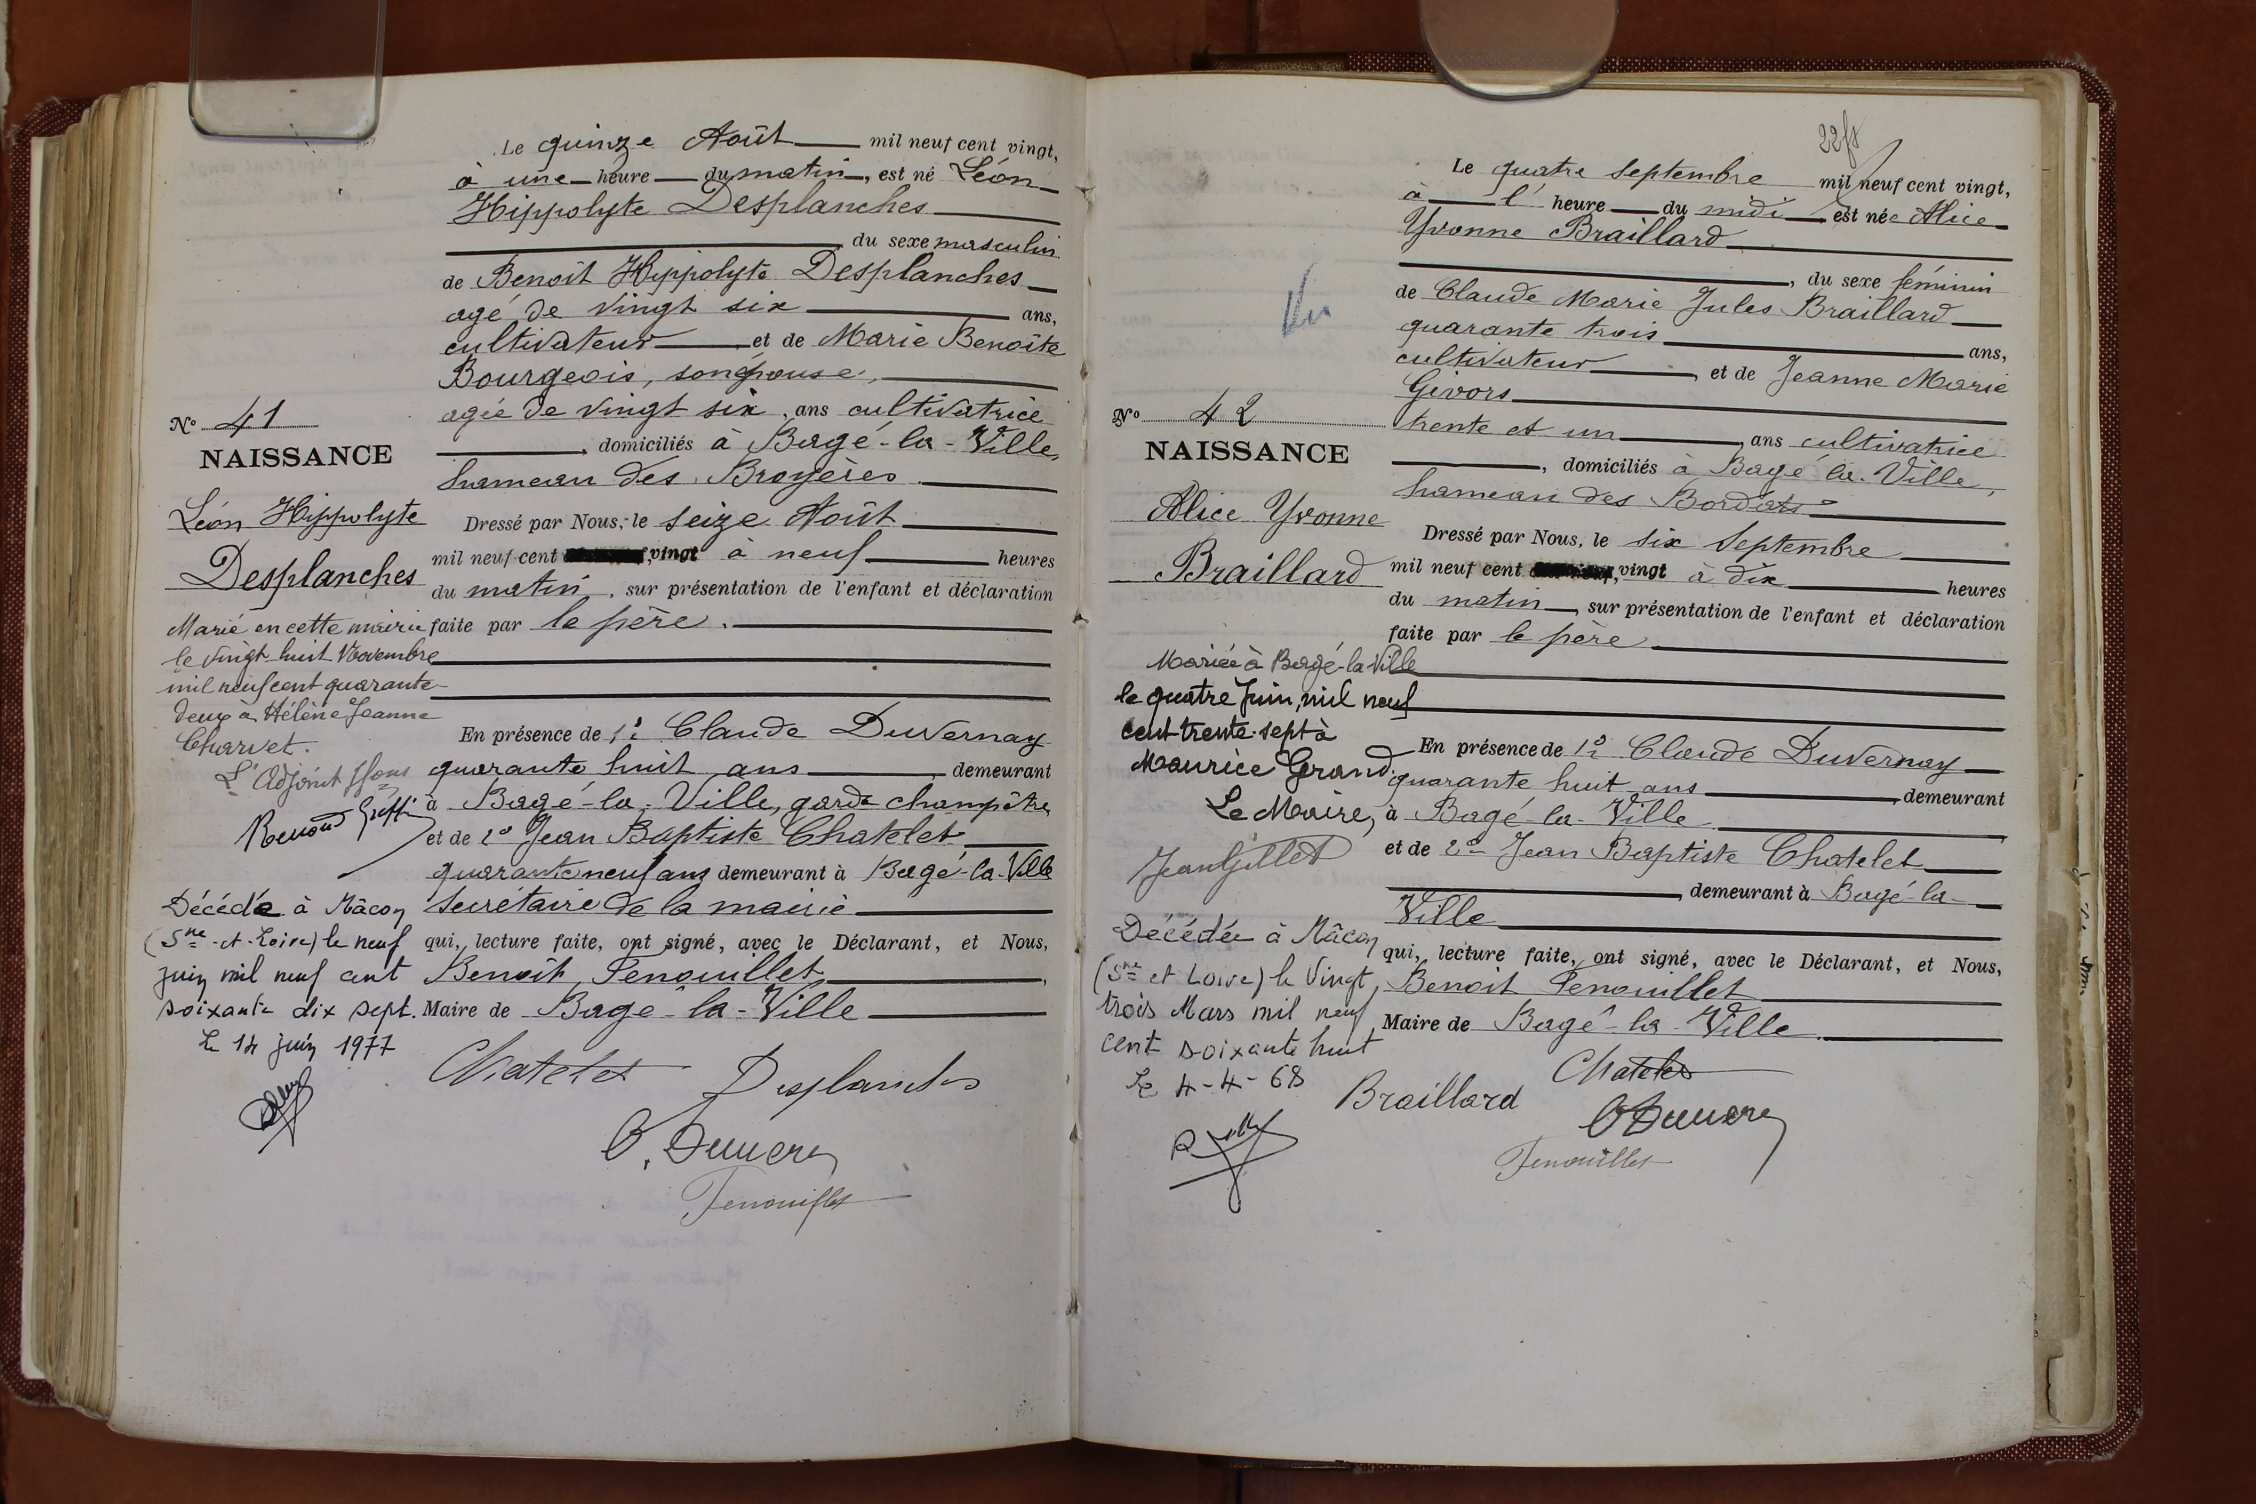 Le quinze Août mil neuf cent vingt,
à une heure du matin, est né Léon
Hippolyte Desplanches
du sexe masculin
de Benoît Hippolyte Desplanches
agé de vingt six ans,
cultivateur et de Marie Benoîte
Bourgeois, son épouse,
agée de vingt six, ans cultivatrice
, domiciliés à Bagé-la-Ville,
hameau des Broyères
Dressé par Nous, le seize Août
mil neuf cent vingt à neuf heures
du matin, sur présentation de l'enfant et déclaration
faite par le père.
En présence de 1° Claude Duvernay
quarante huit ans demeurant
à Bagé-la-Ville, garde champêtre
et de 2° Jean Baptiste Chatelet
quarante neuf ans demeurant à Bagé-la-Ville
Secrétaire de la mairie
qui, lecture faite, ont signé, avec le Déclarant, et Nous,
Benoît Fenouillet,
Maire de Bagé-la-Ville
Chatelet
Desplanches
Fenouillet
N° 41
NAISSANCE
Léon Hippolyte
Desplanches
Marié en cette mairie
le vingt huit Novembre
mil neuf cent quarante
deux à Hélène Jeanne
Charvet.
L'Adjoint
Décédé à Mâcon
(Sne-et-Loire) le neuf
juin mil neuf cent
soixante dix sept.
Le 14 juin 1977
Le quatre Septembre mil neuf cent vingt,
à l' heure du midi est née Alice
Yvonne Braillard
, du sexe féminin
de Claude Marie Jules Braillard
quarante trois ans,
cultivateur, et de Jeanne Marie
Givors
trente et un, ans cultivatrice
, domiciliés à Bagé la Ville,
hameau des Bordets
Dressé par Nous, le six Septembre
mil neuf cent vingt à dix heures
du matin, sur présentation de l'enfant et déclaration
faite par le père
En présence de 1° Claude Duvernay
quarante huit ans, demeurant
à Bagé-la-Ville
et de 2° Jean Baptiste Chatelet
demeurant à Bagé-la-
Ville
qui, lecture faite, ont signé, avec le Déclarant, et Nous,
Benoit Fenouillet
Maire de Bagé-la-Ville
Chatelet
Braillard
Fenouillet
Vu
N° 42
NAISSANCE
Alice Yvonne
Braillard
Mariée à Bagé-la-Ville
le quatre Juin, mil neuf
cent trente-sept à
Maurice Grand.
Le Maire,
Jean Gillet
Décédée à Mâcon
(Sne et Loire) le vingt
trois Mars mil neuf
cent soixante huit
Le 4-4-68